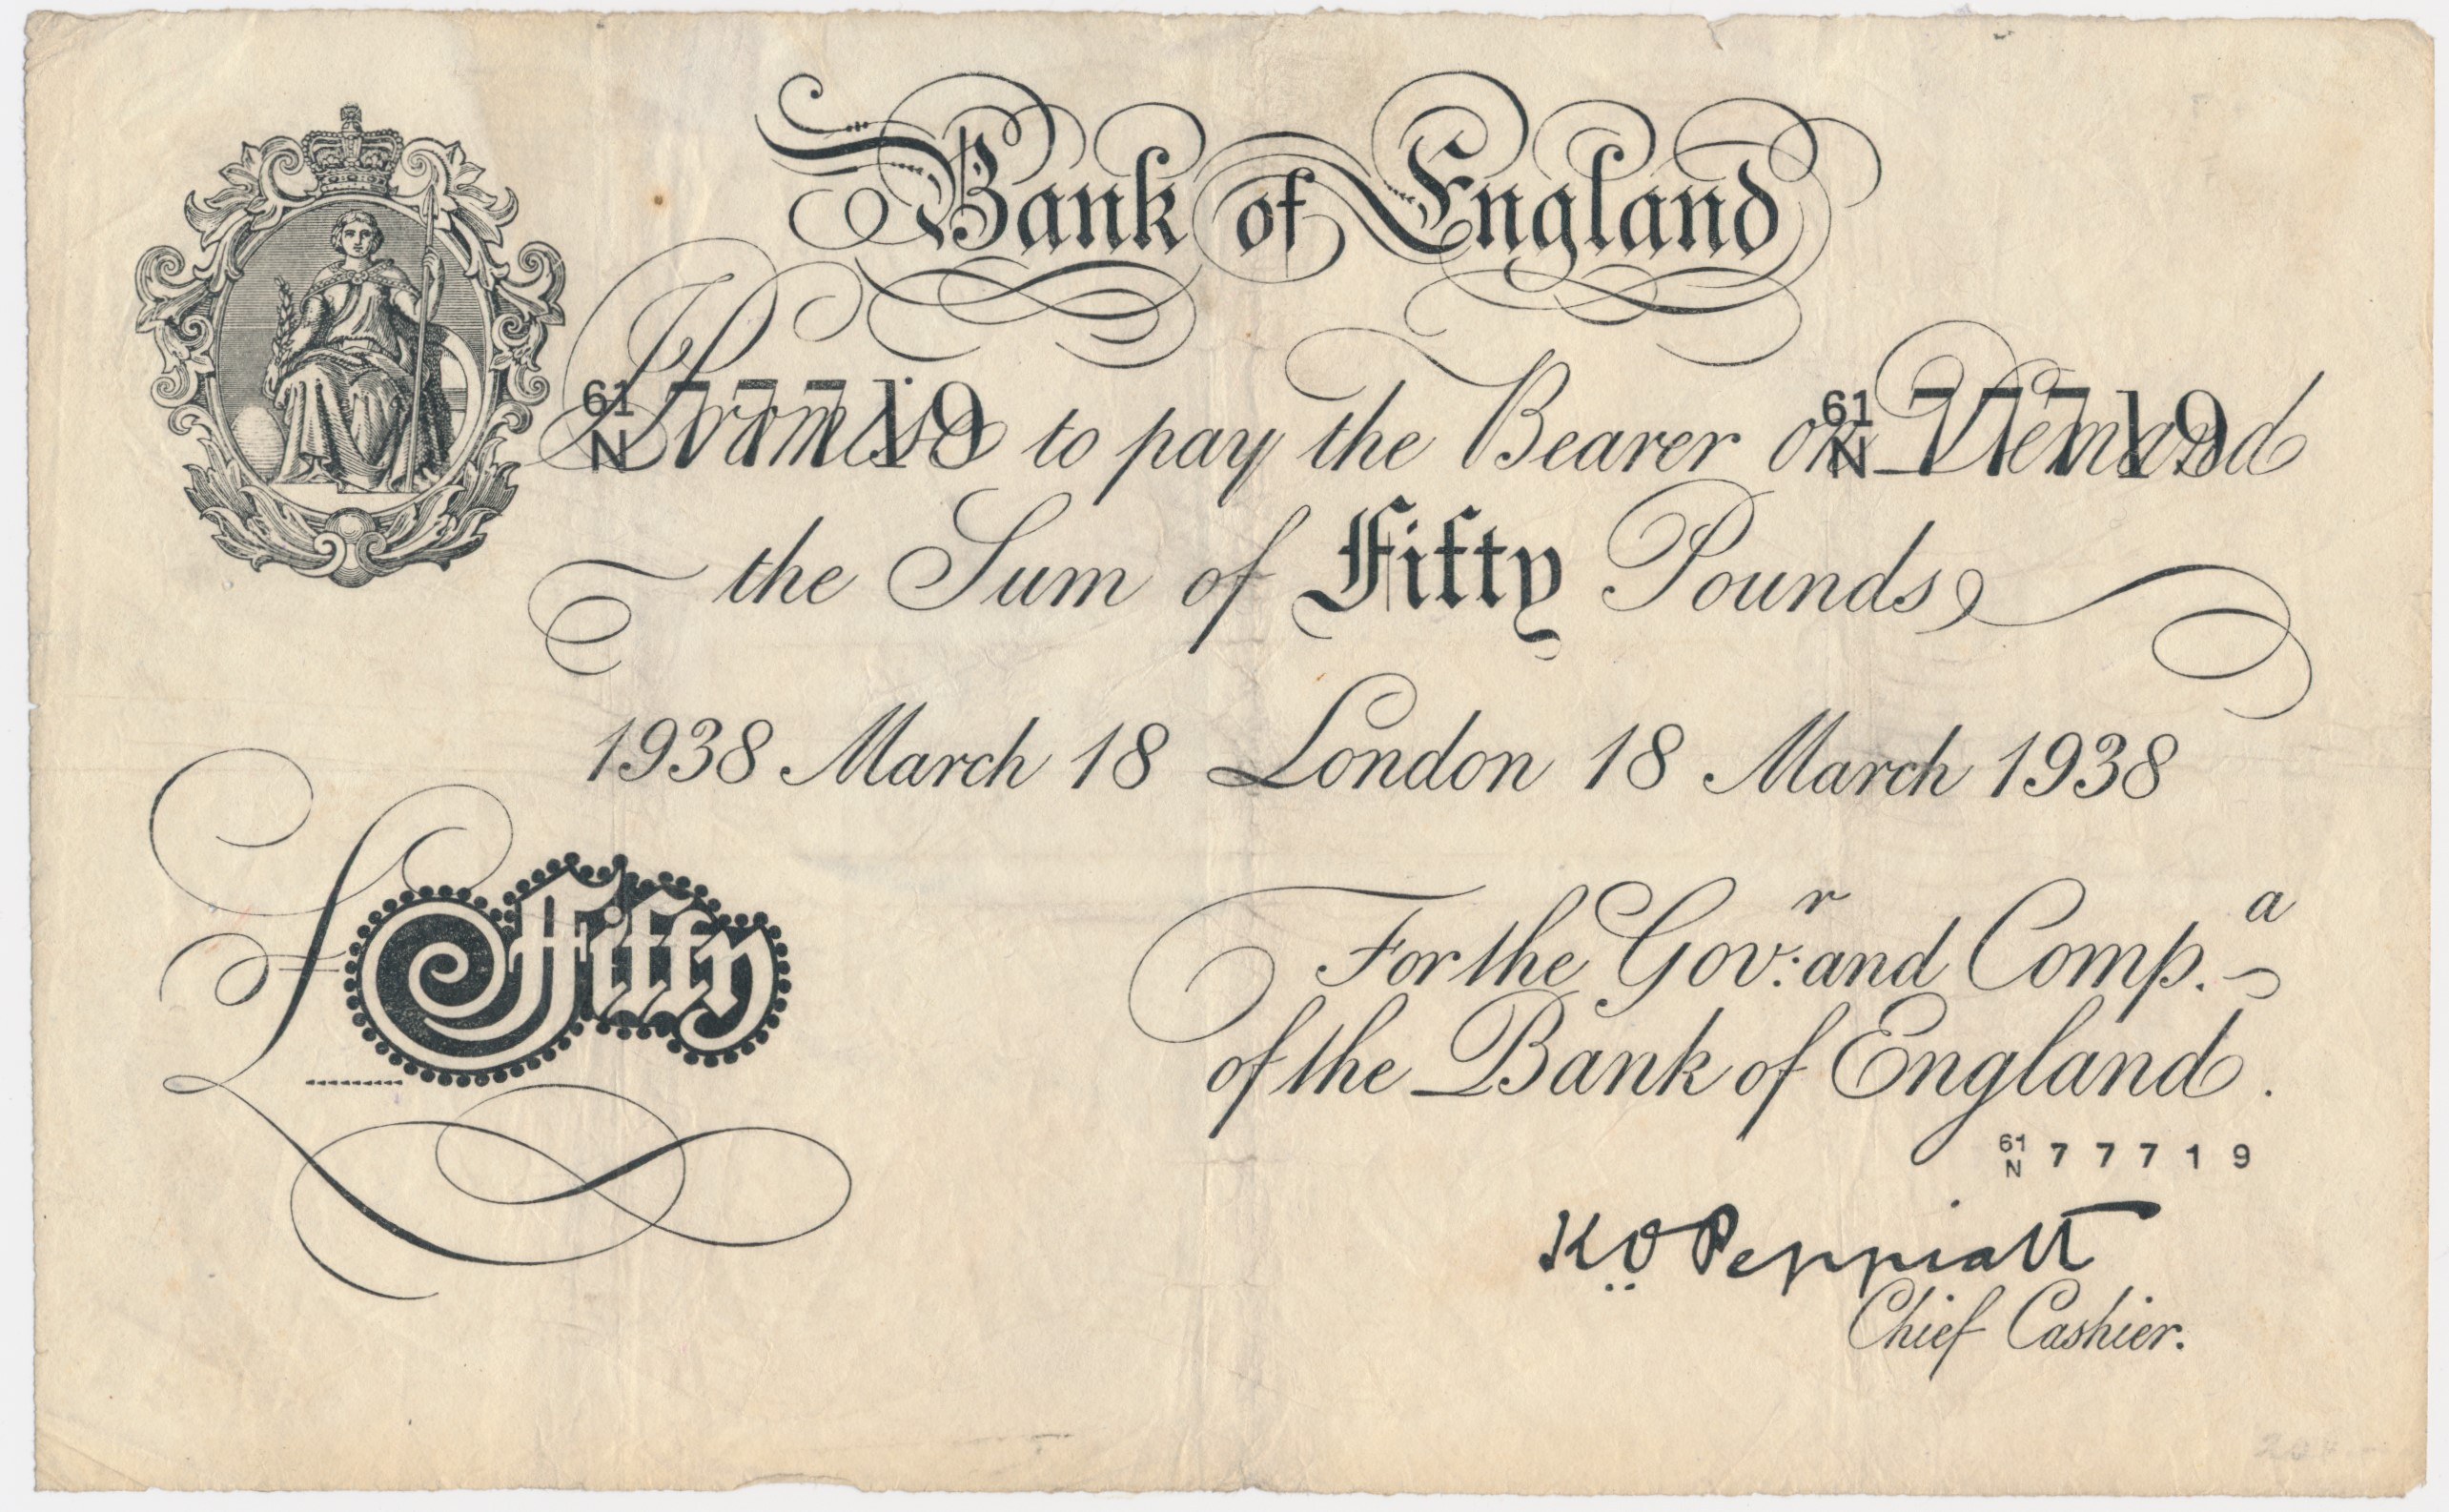 Bank of England
I Promise to pay the Bearer on Demand
61 N 77719 61 N 77719
the Sum of Fifty Pounds
1938 March 18 London 18 March 1938
£ Fifty
For the Gov:r and Comp.a
of the Bank of England.
61 N 77719
K.O. Peppiatt
Chief Cashier.